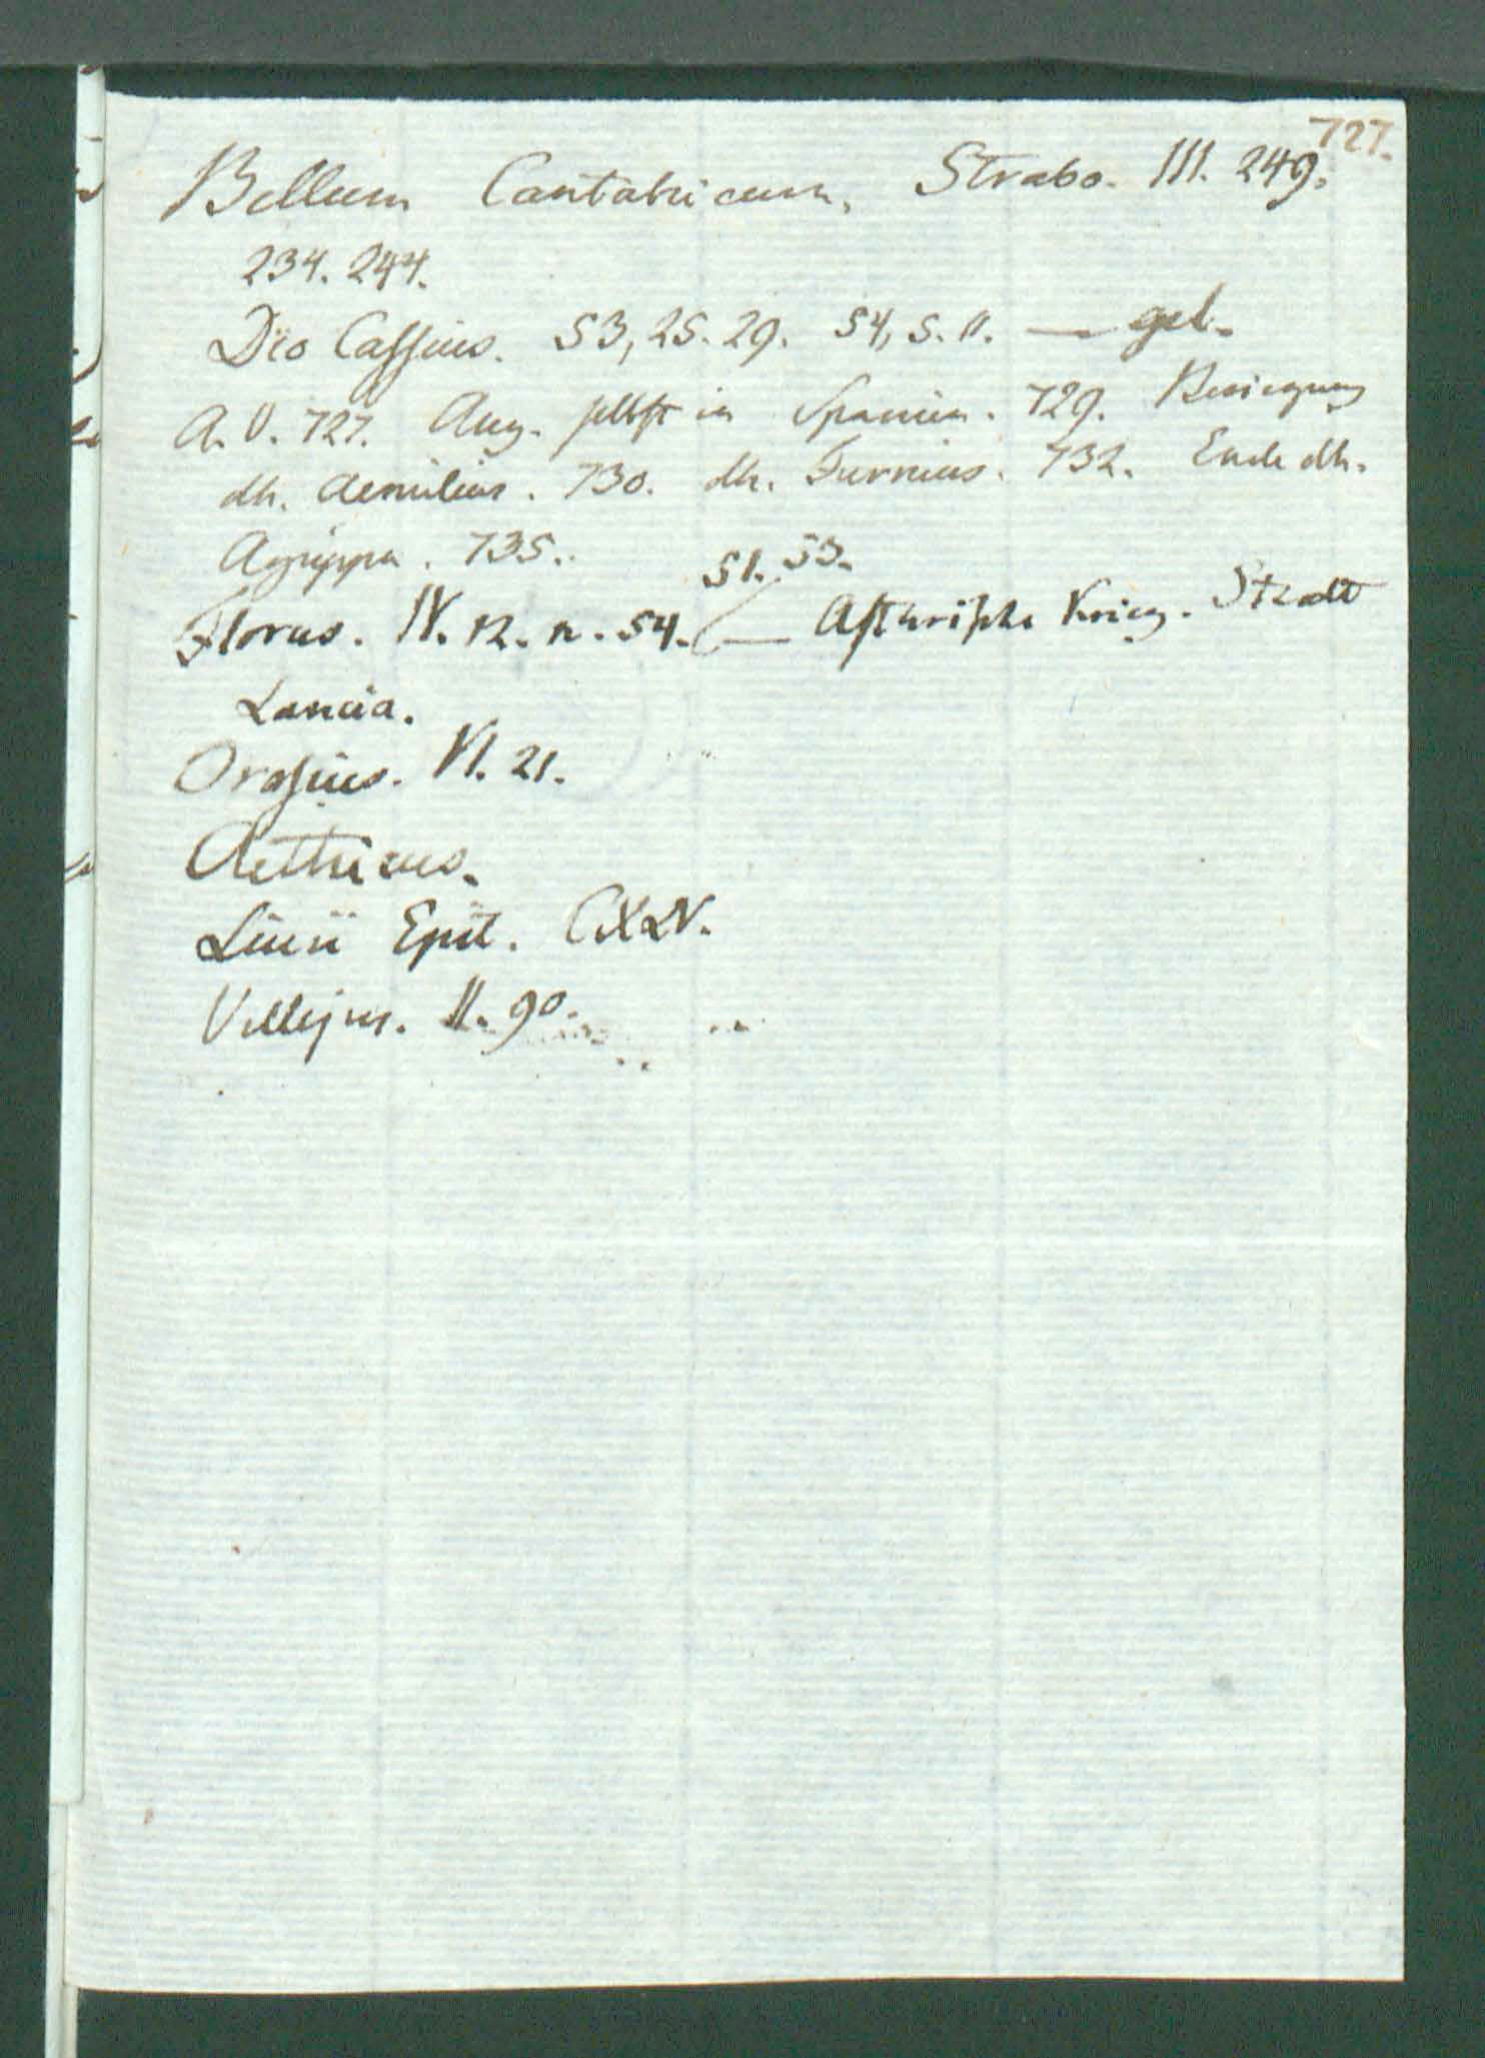 727.
Bellum Cantabricum, Strabo. III. 249.
234. 244.
Dio Cassius. 53, 25. 29. 54, 5. 11. — gel.
A. U. 727. Aug. selbst in Spanien. 729. Besiegung
dh. Aemilius. 730. dh. Furnius. 732. Ende dh.
Agrippa. 735.
51. 53.
Florus. IV. 12. n. 54. — Asturische Krieg. Stadt
Lancia.
Orosius. VI. 21.
Aethicus.
Livii Epit.
Vellejus. II. 90.